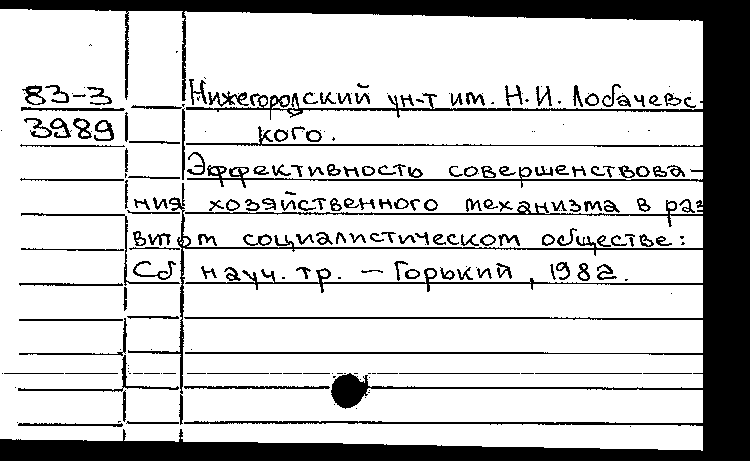 83-3 Нижегородский ун-т им. Н.И. Лобачевс-
3989 кого.
Эффективность совершенствова-
ния хозяйственного механизма в раз
витом социалистическом обществе:
Сб науч. тр. – Горький, 1982.